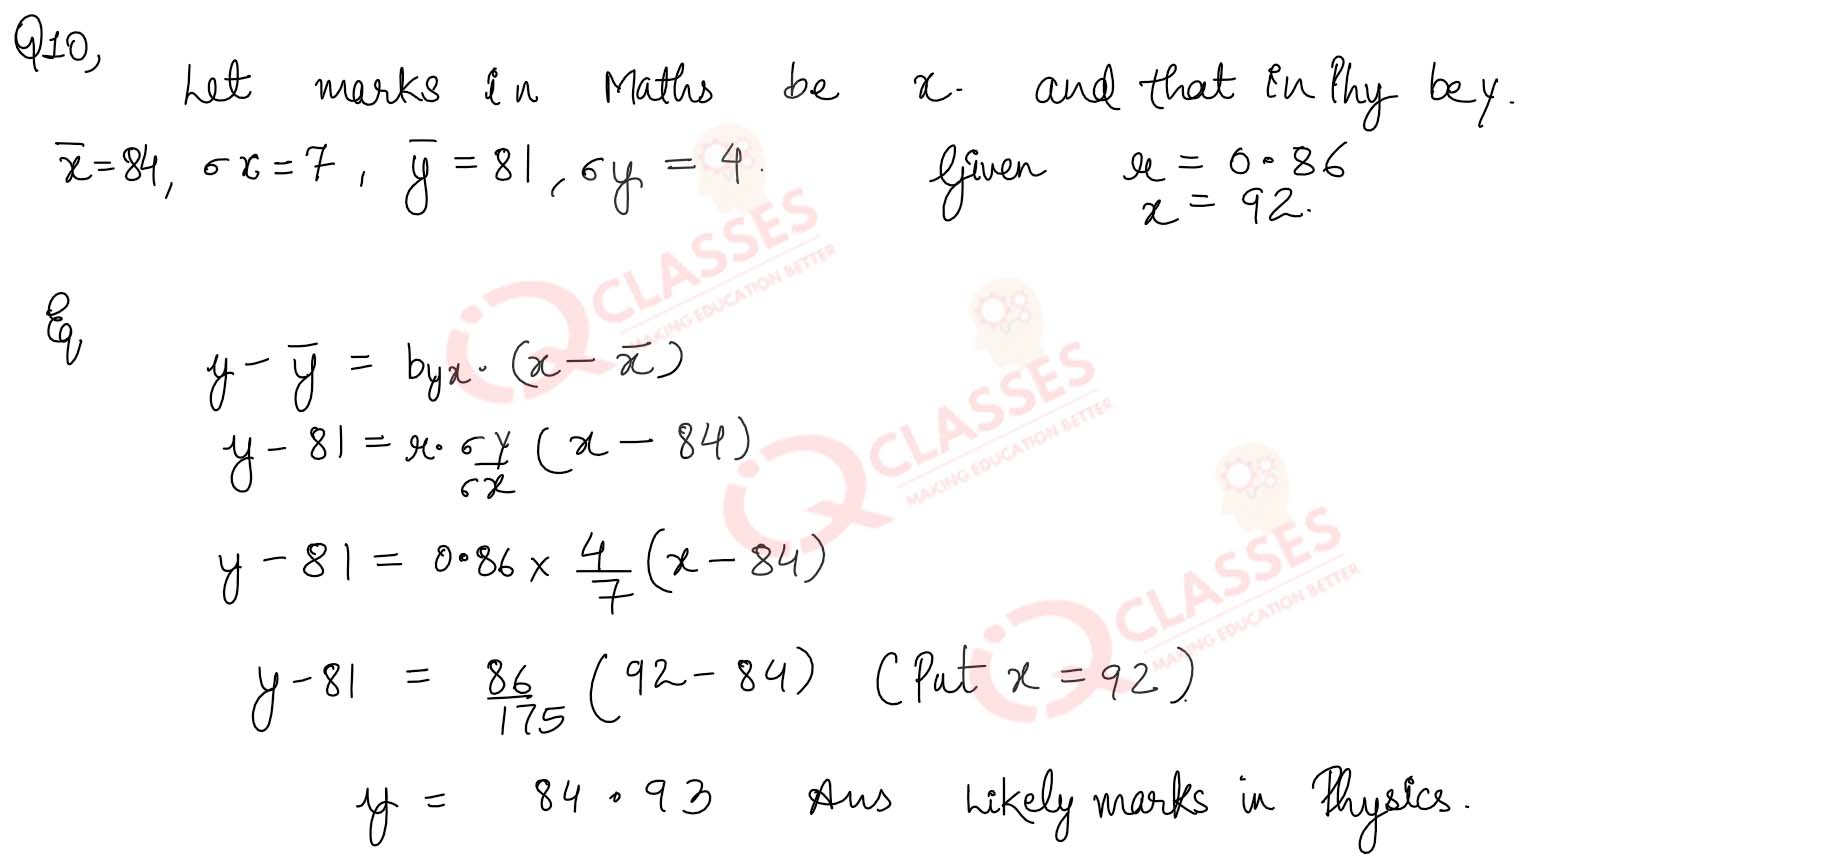 Q10,
Let marks in Maths be x. and that in Phy be y.
x̄ = 84, σx = 7, ȳ = 81, σy = 4. Given r = 0.86
x = 92.
Eq
y - ȳ = byx. (x - x̄)
y - 81 = r. σy/σx (x - 84)
y - 81 = 0.86 × 4/7 (x - 84)
y - 81 = 86/175 (92 - 84) (Put x = 92)
y = 84.93 Ans Likely marks in Physics.
iQ CLASSES
MAKING EDUCATION BETTER
iQ CLASSES
MAKING EDUCATION BETTER
iQ CLASSES
MAKING EDUCATION BETTER